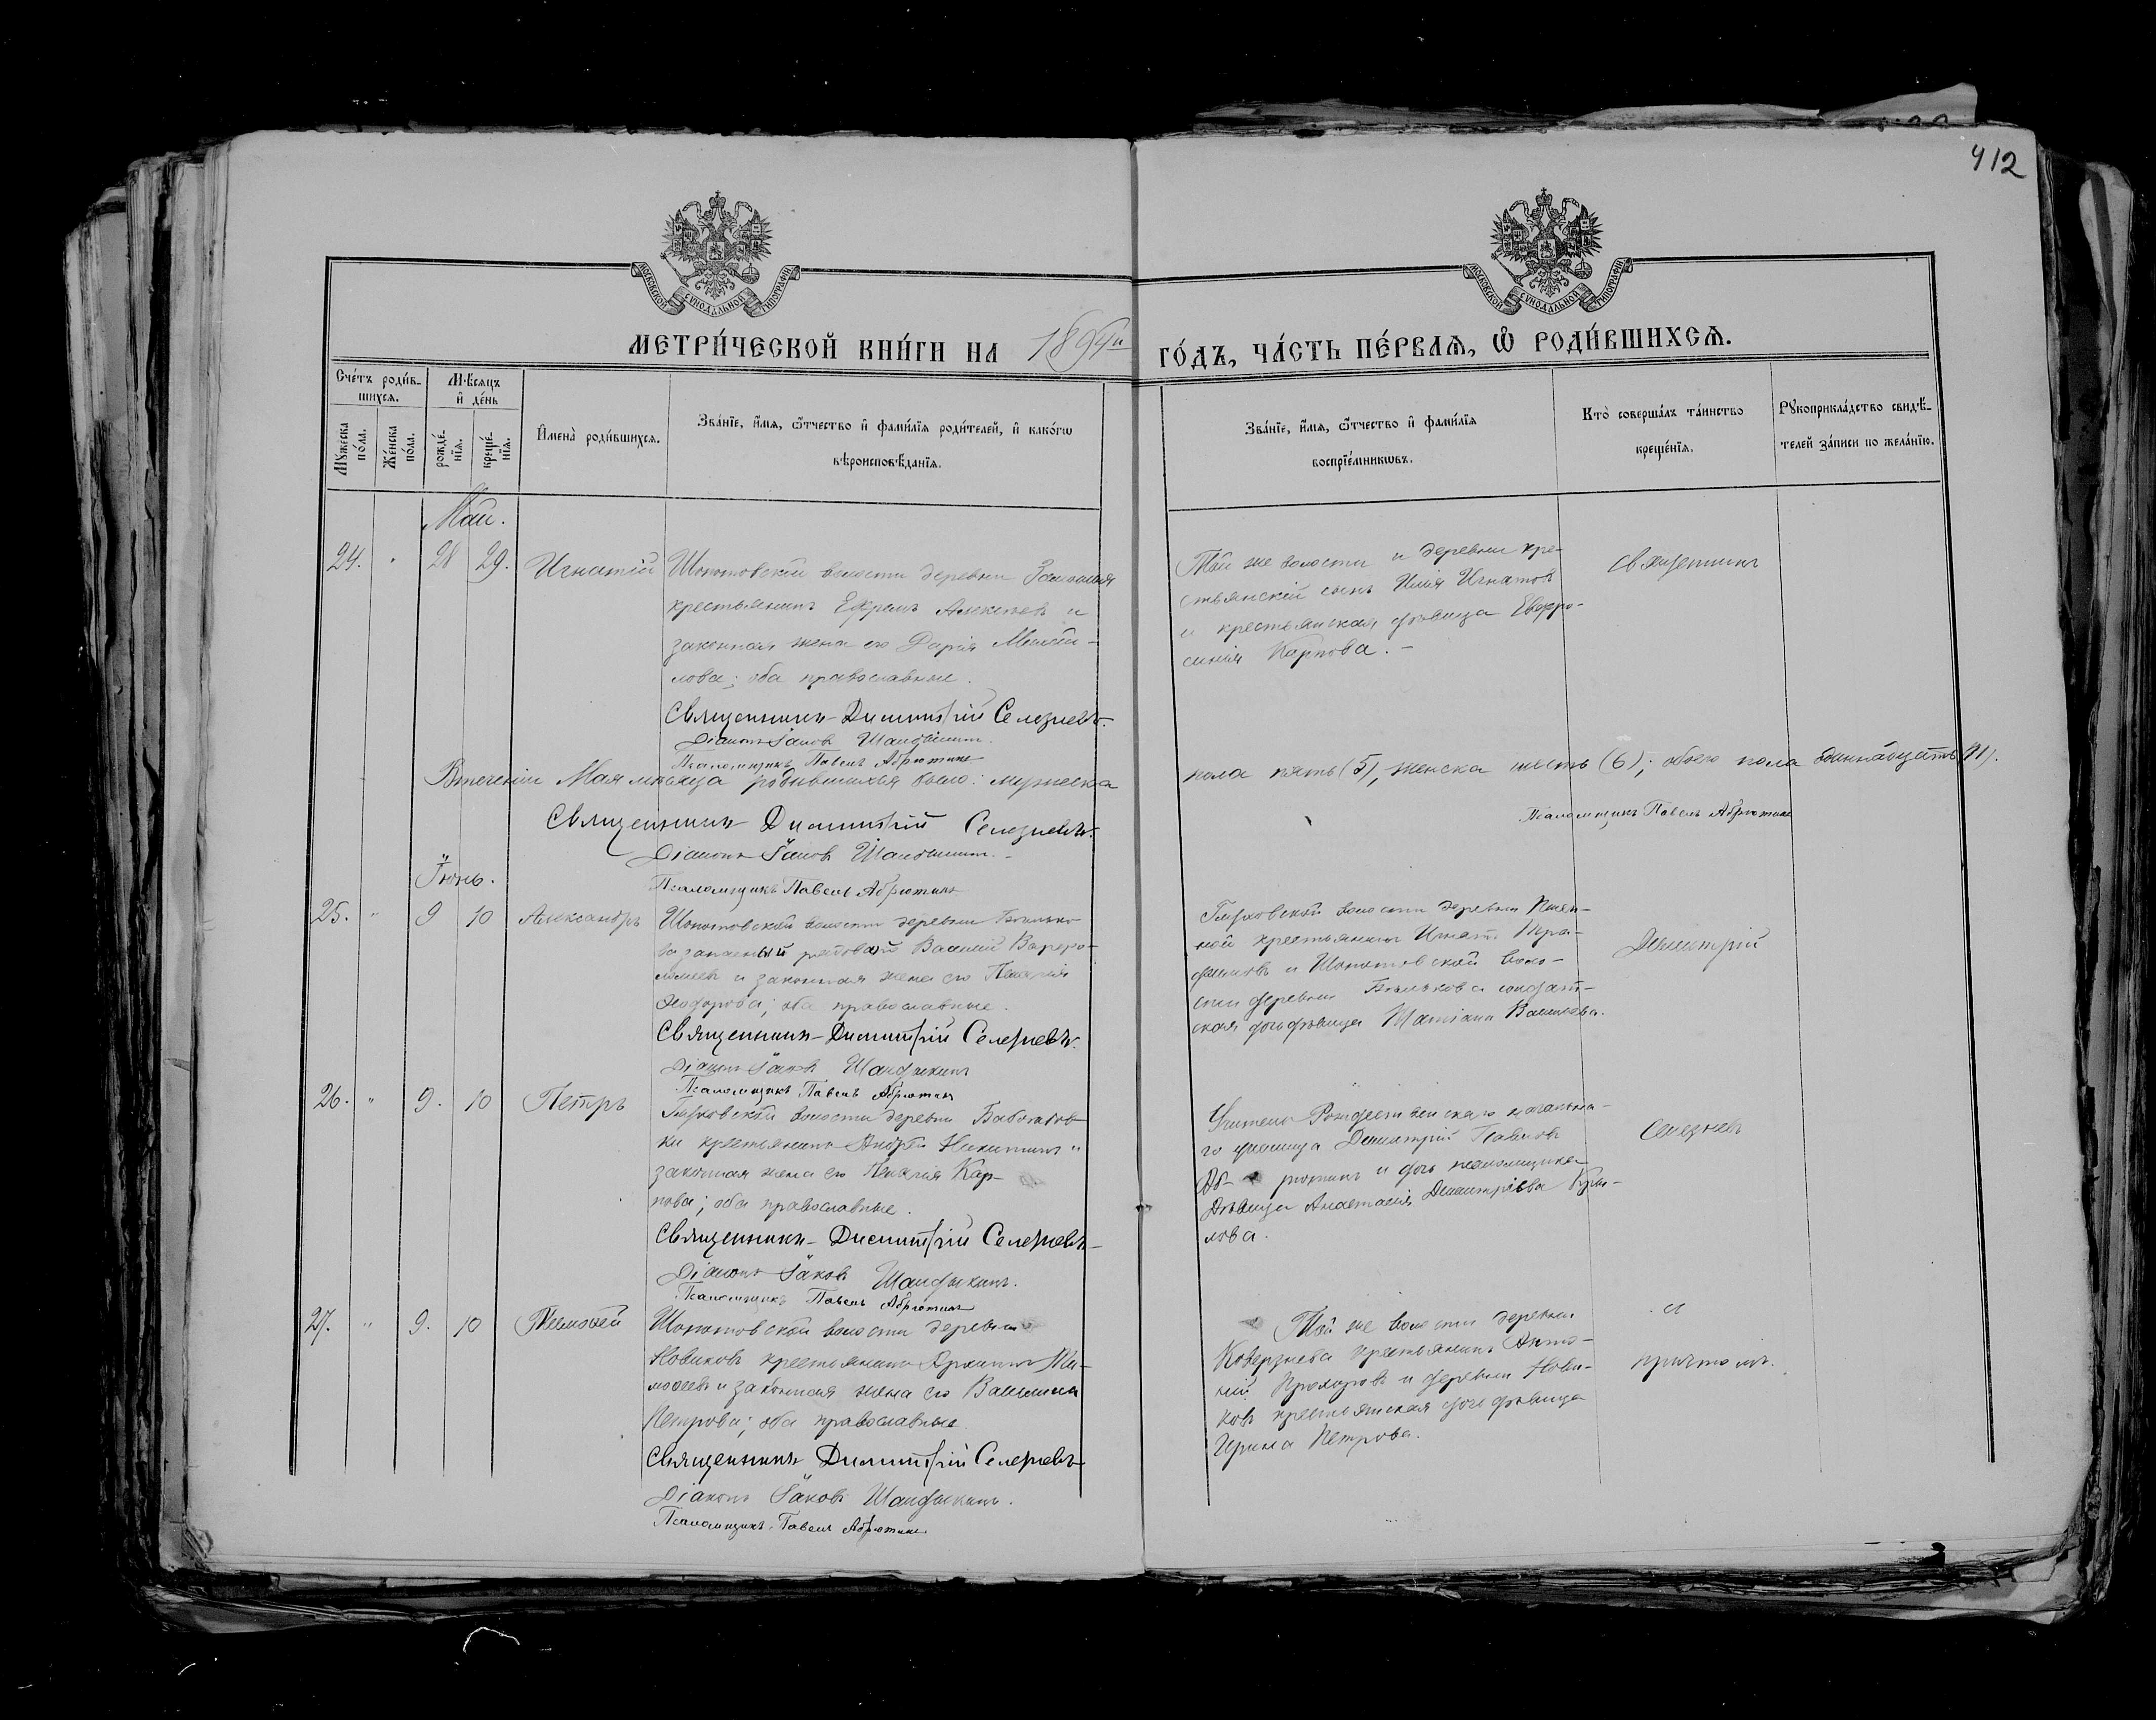 412
МОСКОВСКОЙ СѴНОДАЛЬНОЙ ТИПОГРАФІИ
МОСКОВСКОЙ СѴНОДАЛЬНОЙ ТИПОГРАФІИ
МЕТРИ́ЧЕСКОЙ КНИ́ГИ НА 1894й ГО́ДЪ, ЧА́СТЬ ПЕ́РВАѦ, Ѡ҆ РОДИ́ВШИХСѦ.
Сче́тъ роди́в-
шихсѧ.
Мѣ́сѧцъ
и҆ де́нь
Мꙋ́жеска по́ла.
Же́нска по́ла.
рожде́-
нїѧ.
креще́-
нїѧ.
И҆мена̀ роди́вшихсѧ.
Зва́нїе, и҆́мѧ, ѻ҆́тчество и҆ фами́лїѧ роди́телей, и҆ како́гѡ
вѣроисповѣ́данїѧ.
Зва́нїе, и҆́мѧ, ѻ҆́тчество и҆ фами́лїѧ
воспрїе́мникѡвъ.
Кто̀ соверша́лъ та́инство
креще́нїѧ.
Рꙋкоприкла́дство свидѣ́-
телей за́писи по жела́нїю.
Май.
24. " 28 29. Игнатій
Шопотовской волости деревни
крестьянинъ Ефремъ Алексѣевъ и
законная жена его Дарія
лова; оба православные.
Священникъ Димитрій Селезневъ.
Діаконъ Іаковъ Шандыкинъ.
Псаломщикъ Павелъ Абрютинъ
Той же волости и деревни кре-
стьянскій сынъ Илія Игнатовъ
и крестьянская дѣвица Евфро-
синія Карпова. -
Священникъ
Втеченіи Мая мѣсяца родившихся было: мужеска пола пять (5), женска шесть (6); обоего пола одиннадцать (11).
Священникъ Димитрій Селезневъ.
Псаломщикъ Павелъ Абрютинъ
Діаконъ Іаковъ Шандыкинъ. -
Псаломщикъ Павелъ Абрютинъ
Іюнь.
25. " 9 10 Александръ
Шопотовской волости деревни Бѣлько-
ва запасный рядовой Василій Варѳоло-
меевъ и законная жена его Пелагія
Ѳеодорова; оба православные.
Священникъ Димитрій Селезневъ.
Діаконъ Іаковъ Шандыкинъ
Псаломщикъ Павелъ Абрютинъ
Глуховской волости деревни
крестьянинъ Игнатъ
и Шопотовской воло-
сти деревни Бѣлькова солдат-
ская дочь дѣвица Татіана Васильева.
Димитрій
26. " 9. 10 Петръ
Глуховской волости деревни
ки крестьянинъ Андрей Никитинъ и
законная жена его Пелагія Кар-
пова; оба православные.
Священникъ Димитрій Селезневъ
Діаконъ Іаковъ Шандыкинъ.
Псаломщикъ Павелъ Абрютинъ
Учитель Рождественскаго начальна-
го училища Димитрій Павловъ
Аб- рютинъ и дочь псаломщика
дѣвица Анастасія Димитріева Кры-
лова.
Селезневъ
27. " 9. 10 Тимоѳей
Шопотовской волости деревни
Новиковъ крестьянинъ Архипъ Ти-
моѳеевъ и законная жена его Василиса
Петрова; оба православные.
Священникъ Димитрій Селезневъ
Діаконъ Іаковъ Шандыкинъ.
Псаломщикъ Павелъ Абрютинъ
Той же волости деревни
Коверзнева крестьянинъ Анто-
ній Прохоровъ и деревни Нови-
ковъ крестьянская дочь дѣвица
Ирина Петрова.
и
причтомъ.